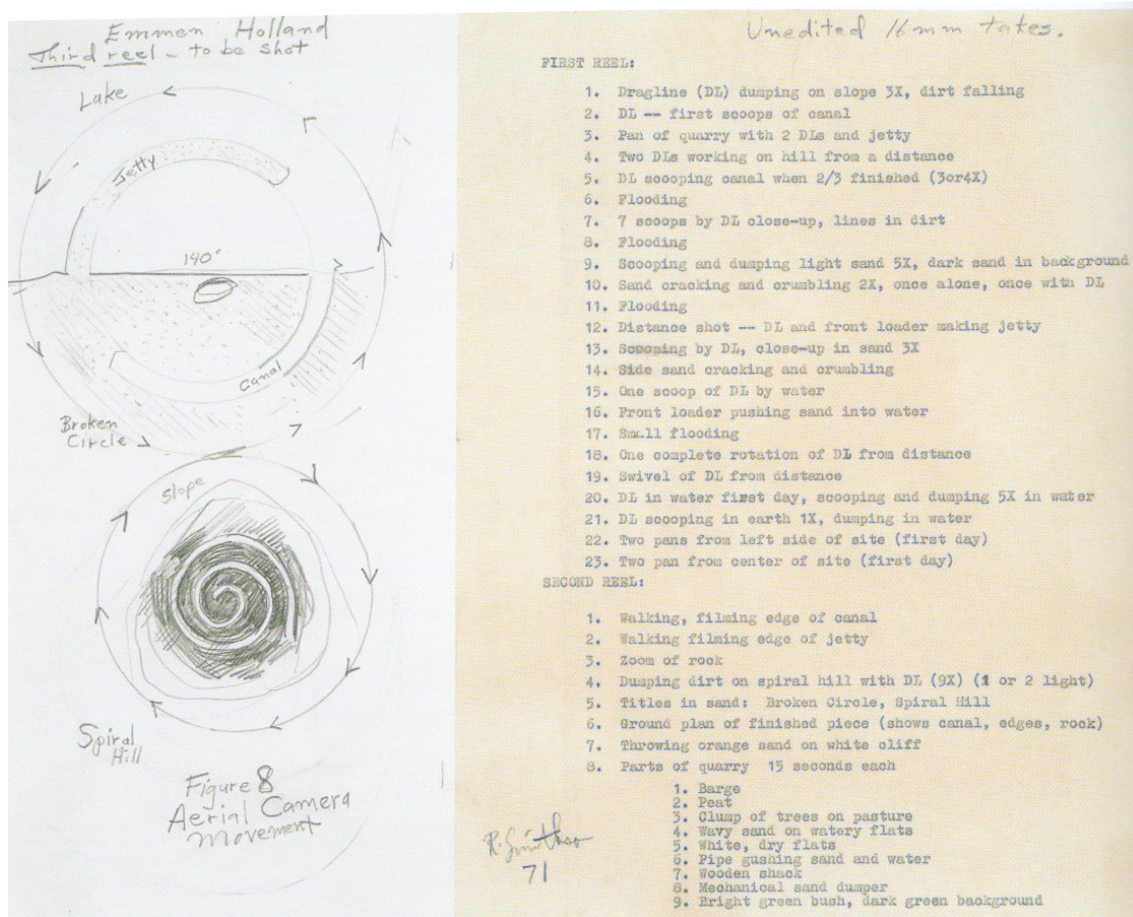 Emmen Holland
Third reel - to be shot
Lake
Jetty
140'
Canal
Broken
Circle
Slope
Spiral
Hill
Figure 8
Aerial Camera
Movement
Unedited 16mm takes.
FIRST REEL:
1. Dragline (DL) dumping on slope 3X, dirt falling
2. DL -- first scoops of canal
3. Pan of quarry with 2 DLs and jetty
4. Two DLs working on hill from a distance
5. DL scooping canal when 2/3 finished (3or4X)
6. Flooding
7. 7 scoops by DL close-up, lines in dirt
8. Flooding
9. Scooping and dumping light sand 5X, dark sand in background
10. Sand cracking and crumbling 2X, once alone, once with DL
11. Flooding
12. Distance shot -- DL and front loader making jetty
13. Scooping by DL, close-up in sand 3X
14. Side sand cracking and crumbling
15. One scoop of DL by water
16. Front loader pushing sand into water
17. Small flooding
18. One complete rotation of DL from distance
19. Swivel of DL from distance
20. DL in water first day, scooping and dumping 5X in water
21. DL scooping in earth 1X, dumping in water
22. Two pans from left side of site (first day)
23. Two pan from center of site (first day)
SECOND REEL:
1. Walking, filming edge of canal
2. Walking filming edge of jetty
3. Zoom of rock
4. Dumping dirt on spiral hill with DL (9X) (1 or 2 light)
5. Titles in sand: Broken Circle, Spiral Hill
6. Ground plan of finished piece (shows canal, edges, rock)
7. Throwing orange sand on white cliff
8. Parts of quarry 15 seconds each
1. Barge
2. Peat
3. Clump of trees on pasture
4. Wavy sand on watery flats
5. White, dry flats
6. Pipe gushing sand and water
7. Wooden shack
8. Mechanical sand dumper
9. Bright green bush, dark green background
R. Smithson
71